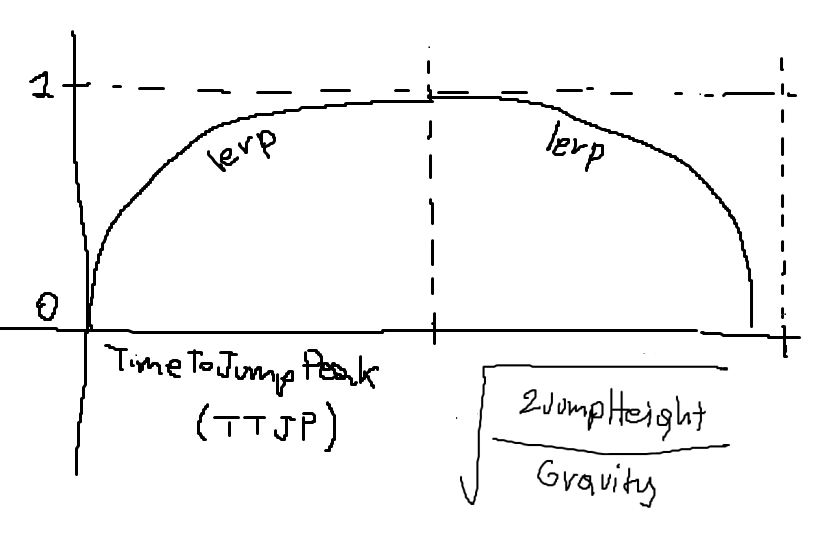 1
lerp
lerp
0
TimeToJumpPeak
(TTJP)
√
2JumpHeight
Gravity